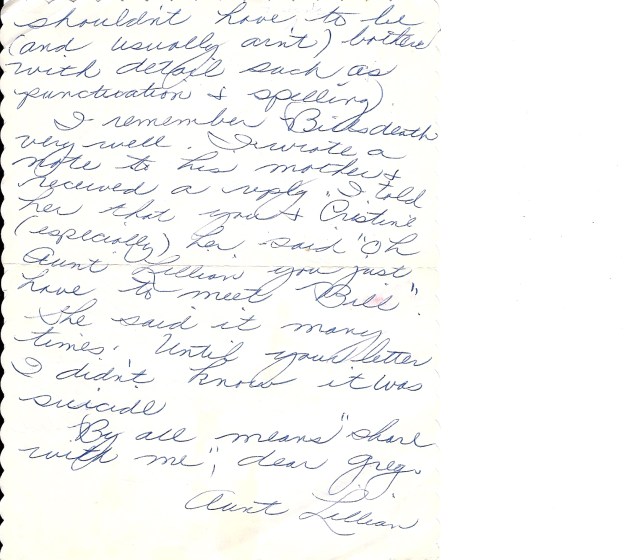 shouldn't have to be
(and usually ain't) bothered
with detail such as
punctivation & spelling)
I remember Bills death
very well. I wrote a
note to his mother &
received a reply. I told
her that you & Cristine
(especially) her, said "Oh
Aunt Lillian you just
have to meet "Bill".
She said it many
times. Until your letter
I didn't know it was
suicide
By all means "share
with me", dear Greg.
Aunt Lillian